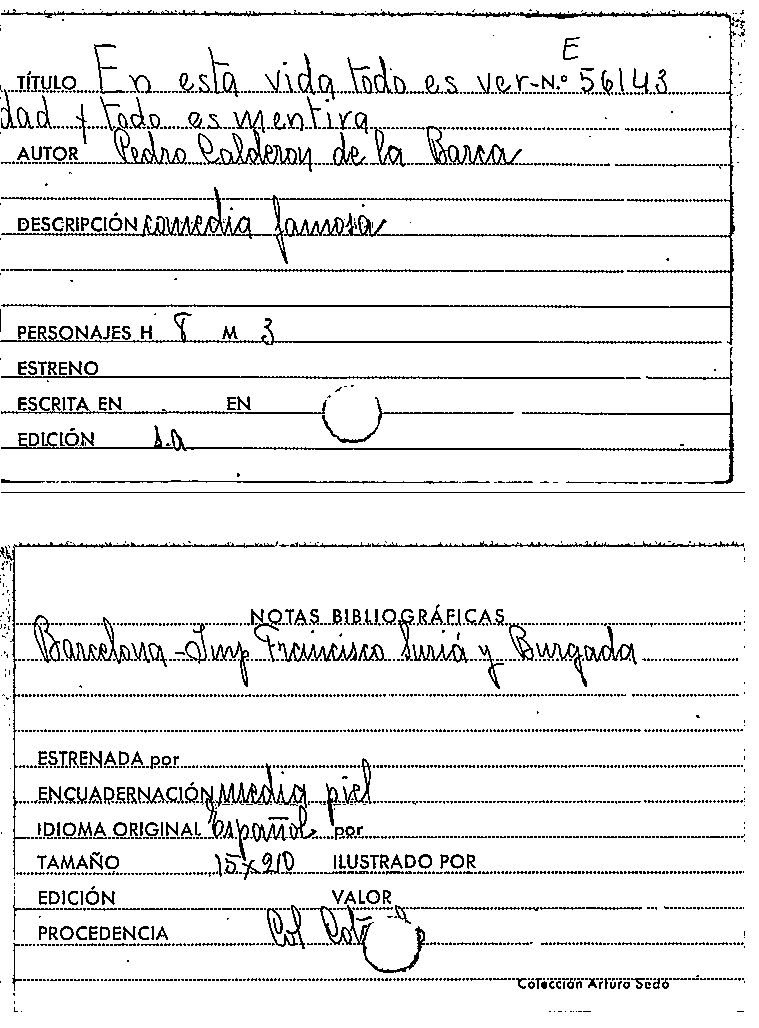 E
TÍTULO En esta vida todo es ver- N.º 56143
dad y todo es mentira
AUTOR Pedro Calderon de la Barca
DESCRIPCIÓN comedia famosa
PERSONAJES H 8 M 3
ESTRENO
ESCRITA EN EN
EDICIÓN s.a.
NOTAS BIBLIOGRÁFICAS
Barcelona - Imp Francisco Suriá y Burgada
ESTRENADA por
ENCUADERNACIÓN media piel
IDIOMA ORIGINAL español por
TAMAÑO 15x210 ILUSTRADO POR
EDICIÓN VALOR
PROCEDENCIA Col
Colección Arturo Sedó